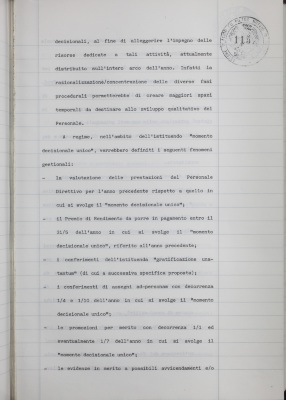 decisionali, al fine di alleggerire l'impegno delle
risorse dedicate a tali attività, attualmente
distribuito sull'intero arco dell'anno. Infatti la
razionalizzazione/concentrazione delle diverse fasi
procedurali permetterebbe di creare maggiori spazi
temporali da destinare allo sviluppo qualitativo del
Personale.
A regime, nell'ambito dell'istituendo "momento
decisionale unico", verrebbero definiti i seguenti fenomeni
gestionali:
- la valutazione delle prestazioni del Personale
Direttivo per l'anno precedente rispetto a quello in
cui si svolge il "momento decisionale unico";
- il Premio di Rendimento da porre in pagamento entro il
31/5 dell'anno in cui si svolge il "momento
decisionale unico", riferito all'anno precedente;
- i conferimenti dell'istituenda "gratificazione una-
tantum" (di cui a successiva specifica proposta);
- i conferimenti di assegni ad-personam con decorrenza
1/4 e 1/11 dell'anno in cui si svolge il "momento
decisionale unico";
- le promozioni per merito con decorrenza 1/1 ed
eventualmente 1/7 dell'anno in cui si svolge il
"momento decisionale unico";
- le evidenze in merito a possibili avvicendamenti e/o